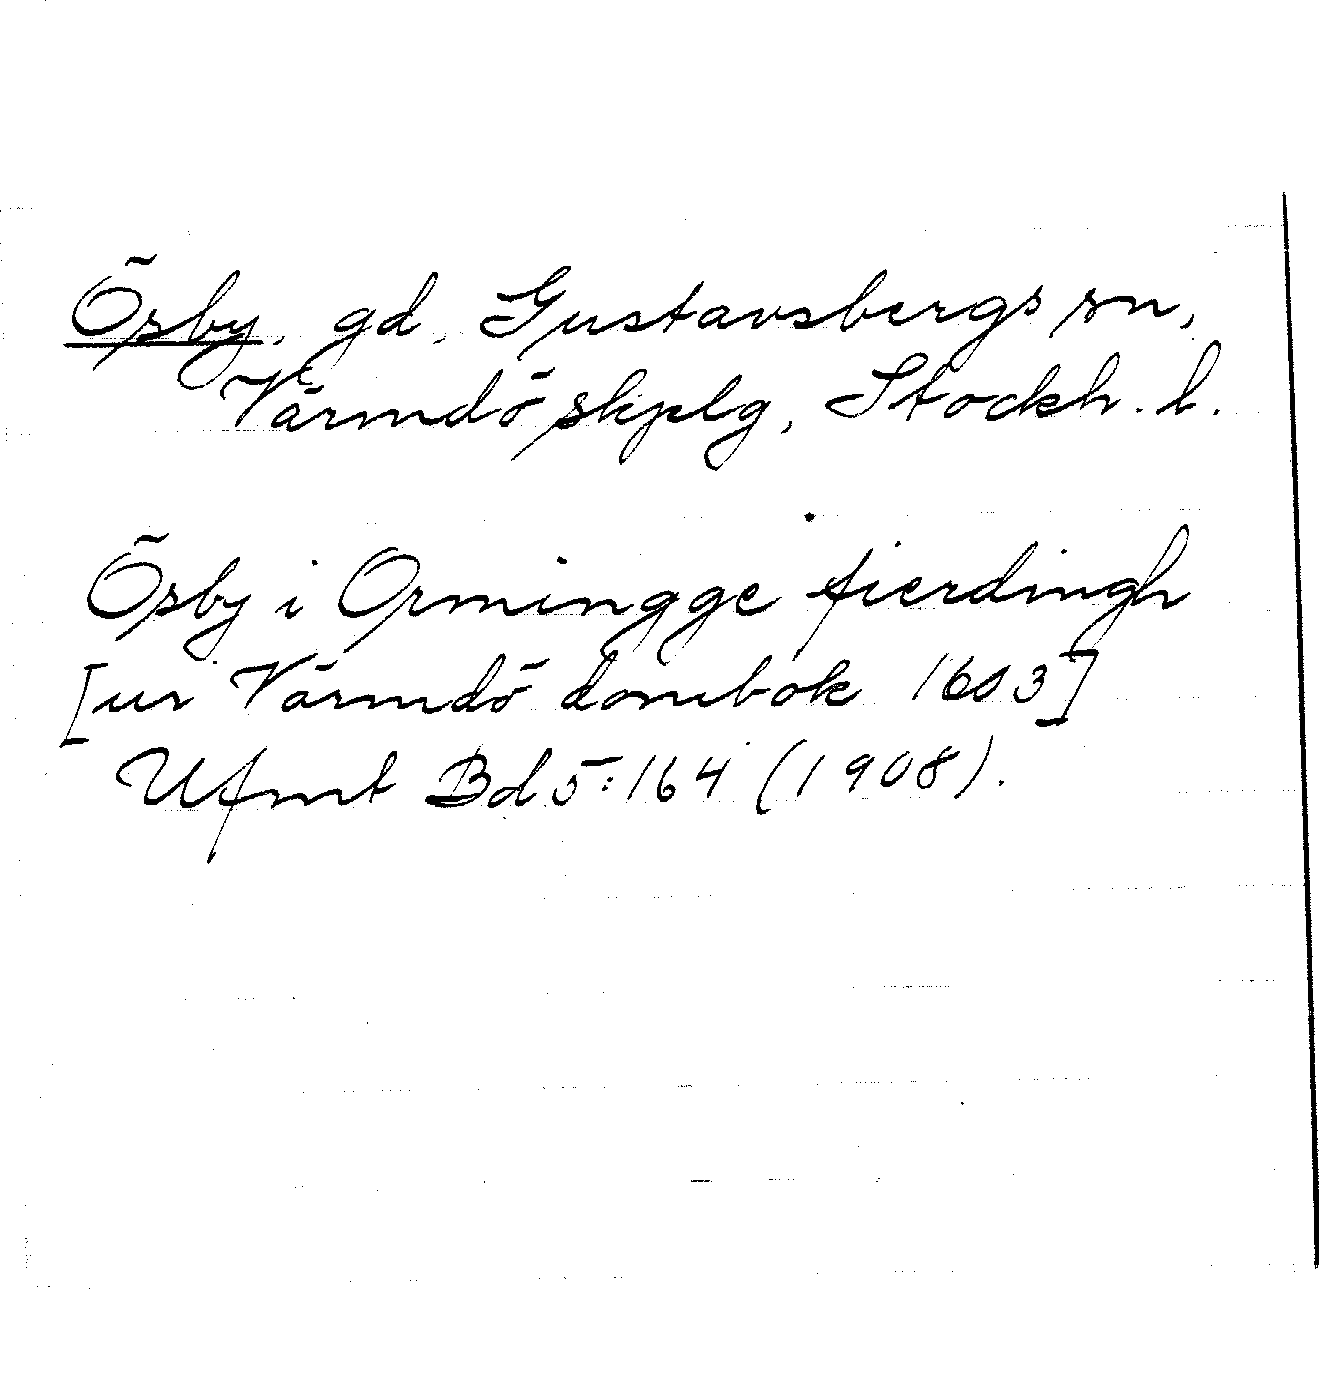 Ösby, gd, Gustavsbergs sn,
Värmdö skplg, Stockh. l.
Ösby i Ormingge fierdingh
[ur Värmdö dombok 1603]
Ufmt Bd 5:164 (1908).